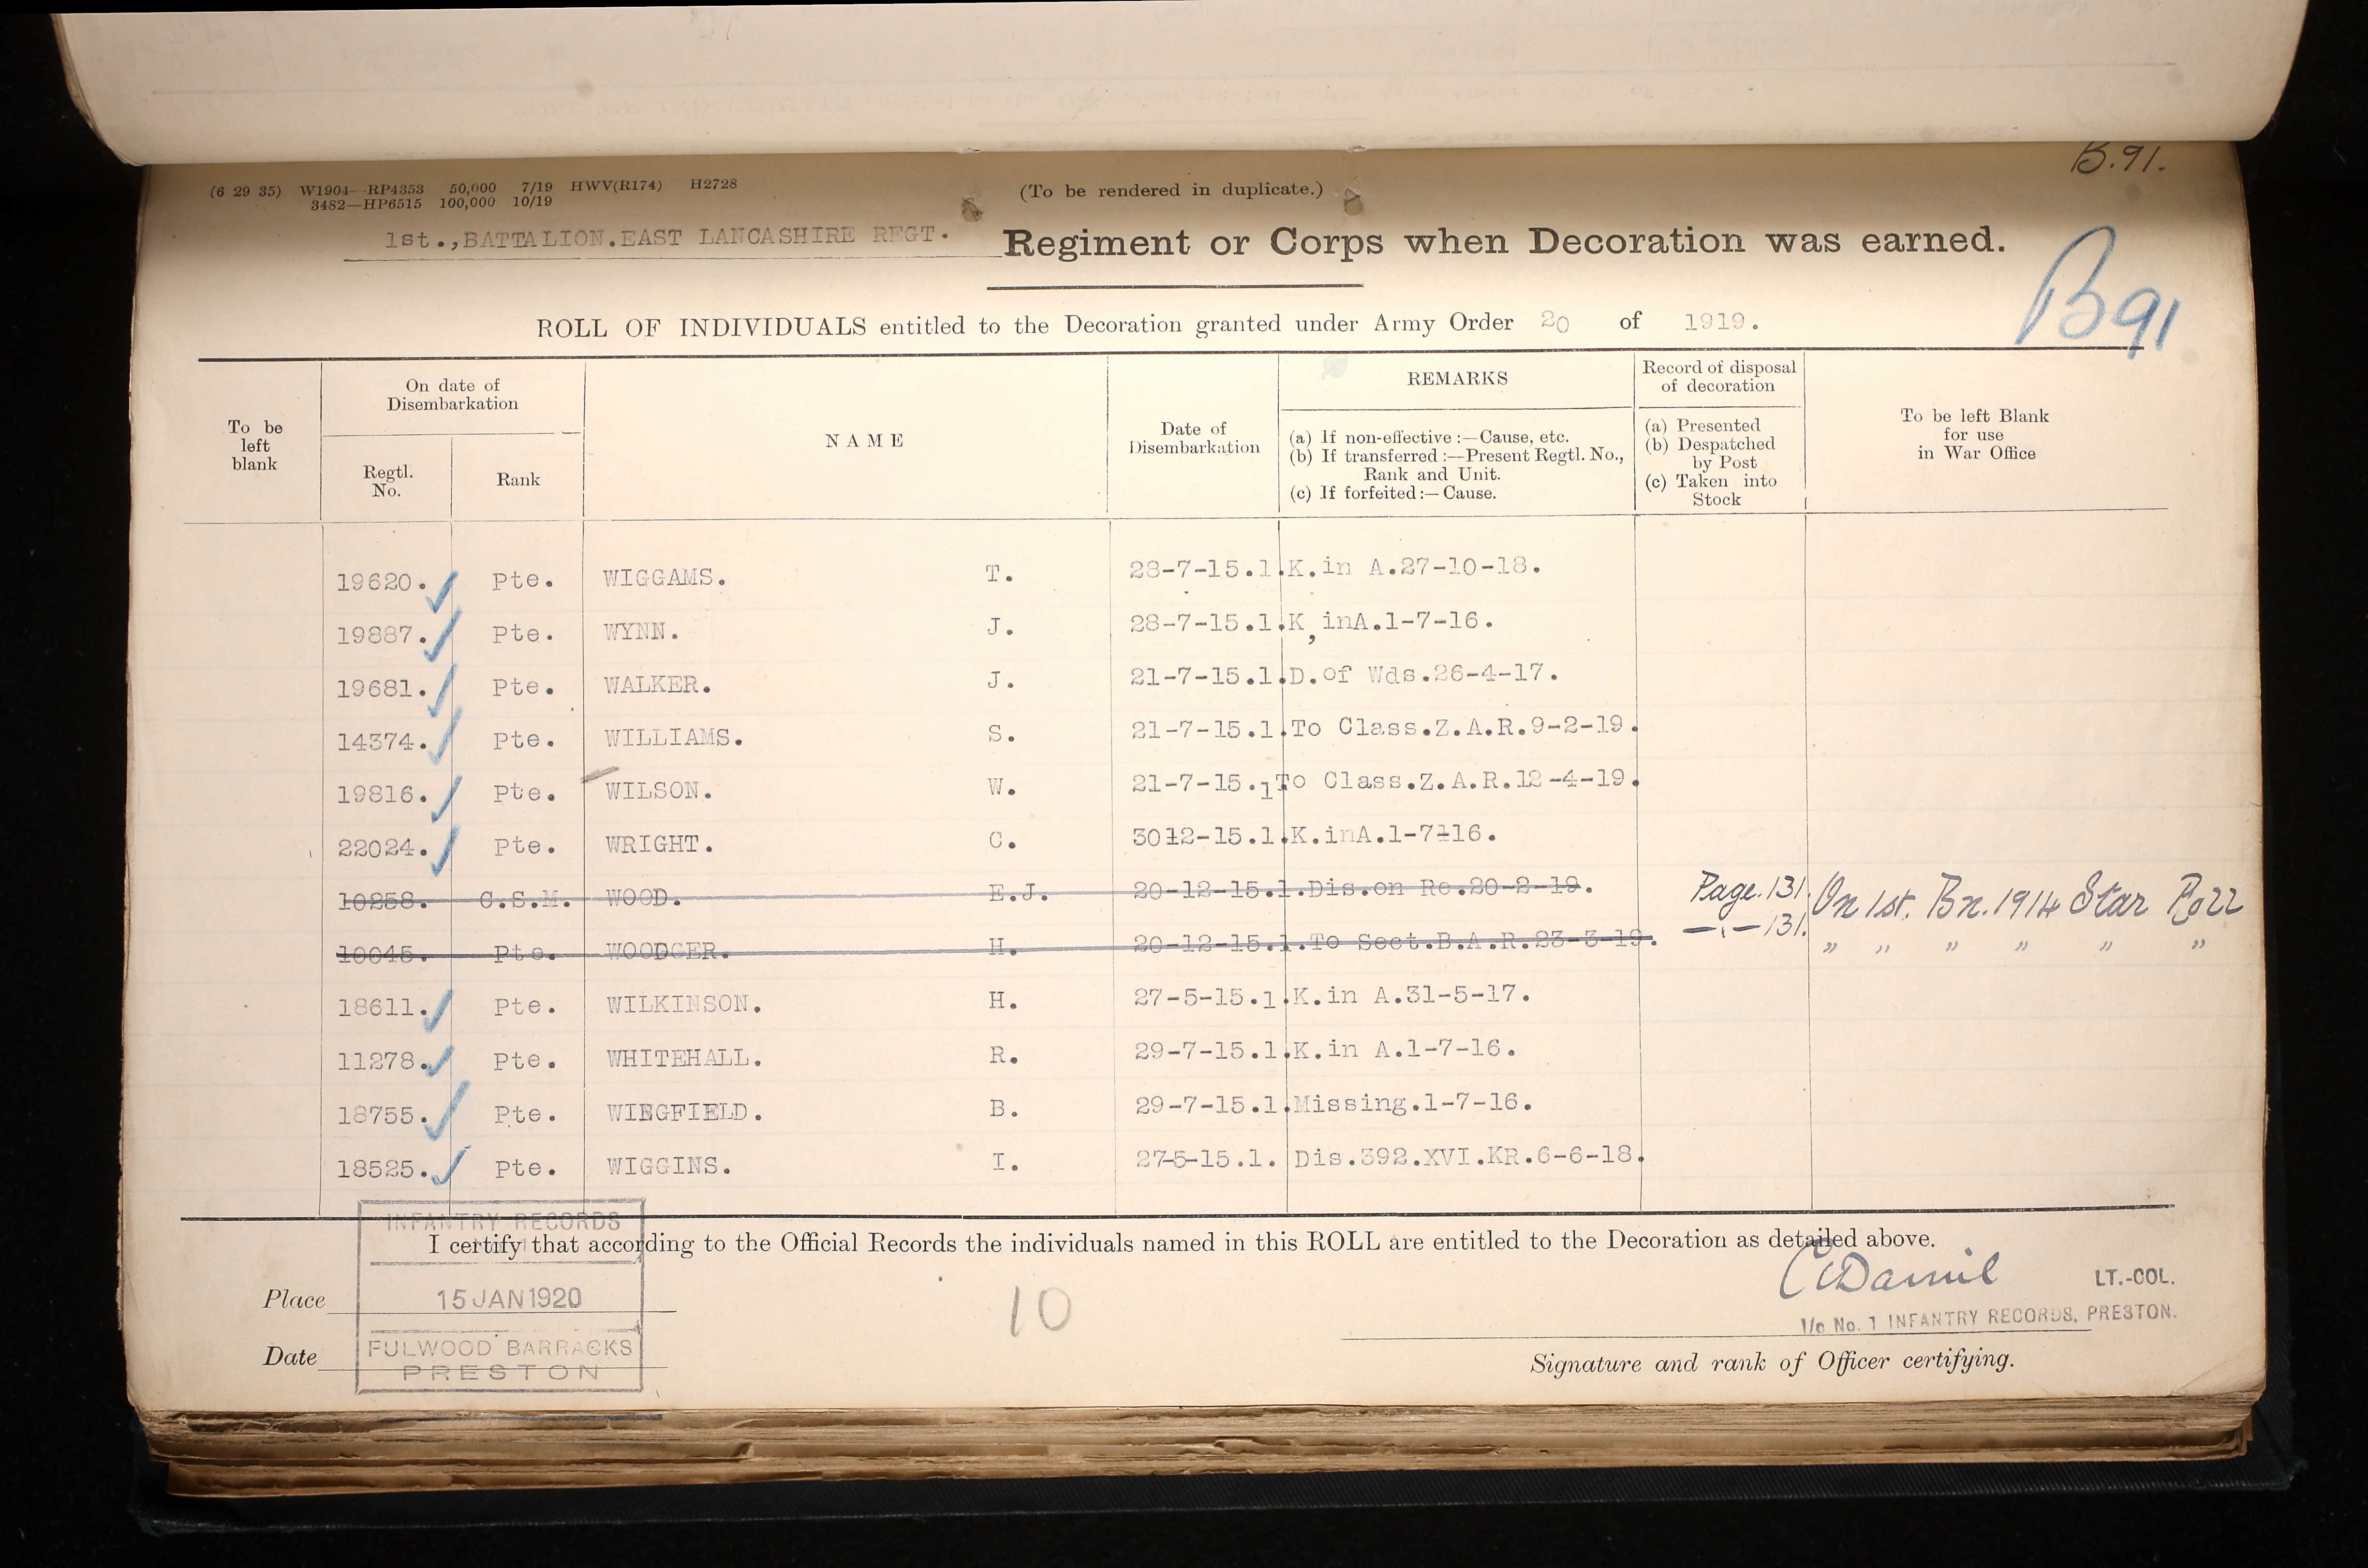 B.91.
(6 29 35) W1904—RP4353 50,000 7/19 HWV(R174) H2728
3482—HP6515 100,000 10/19
(To be rendered in duplicate.)
1st.,BATTALION.EAST LANCASHIRE REGT. Regiment or Corps when Decoration was earned.
B91
ROLL OF INDIVIDUALS entitled to the Decoration granted under Army Order 20 of 1919.
To be left blank
On date of Disembarkation
Regtl. No.
Rank
NAME
Date of Disembarkation
REMARKS
(a) If non-effective :—Cause, etc.
(b) If transferred :—Present Regtl. No., Rank and Unit.
(c) If forfeited :—Cause.
Record of disposal of decoration
(a) Presented
(b) Despatched by Post
(c) Taken into Stock
To be left Blank for use in War Office
19620. Pte. WIGGAMS. T. 28-7-15.1.K.in A.27-10-18.
19887. Pte. WYNN. J. 28-7-15.1.K,inA.1-7-16.
19681. Pte. WALKER. J. 21-7-15.1.D.of Wds.26-4-17.
14374. Pte. WILLIAMS. S. 21-7-15.1.To Class.Z.A.R.9-2-19.
19816. Pte. WILSON. W. 21-7-15.1To Class.Z.A.R.12-4-19.
22024. Pte. WRIGHT. C. 3012-15.1.K.inA.1-7-16.
10258. C.S.M. WOOD. E.J. 20-12-15.1.Dis.on Re.20-2-19. Page.131. On 1st. Bn. 1914 Star Roll
10045. Pte. WOODGER. H. 20-12-15.1.To Sect.B.A.R.23-3-19. —.—131. " " " " " "
18611. Pte. WILKINSON. H. 27-5-15.1.K.in A.31-5-17.
11278. Pte. WHITEHALL. R. 29-7-15.1.K.in A.1-7-16.
18755. Pte. WINGFIELD. B. 29-7-15.1.Missing.1-7-16.
18525. Pte. WIGGINS. I. 27-5-15.1. Dis.392.XVI.KR.6-6-18.
INFANTRY RECORDS
I certify that according to the Official Records the individuals named in this ROLL are entitled to the Decoration as detailed above.
LT.-COL.
Place 15 JAN 1920
10
I/c No. 1 INFANTRY RECORDS, PRESTON.
Date FULWOOD BARRACKS
PRESTON
Signature and rank of Officer certifying.